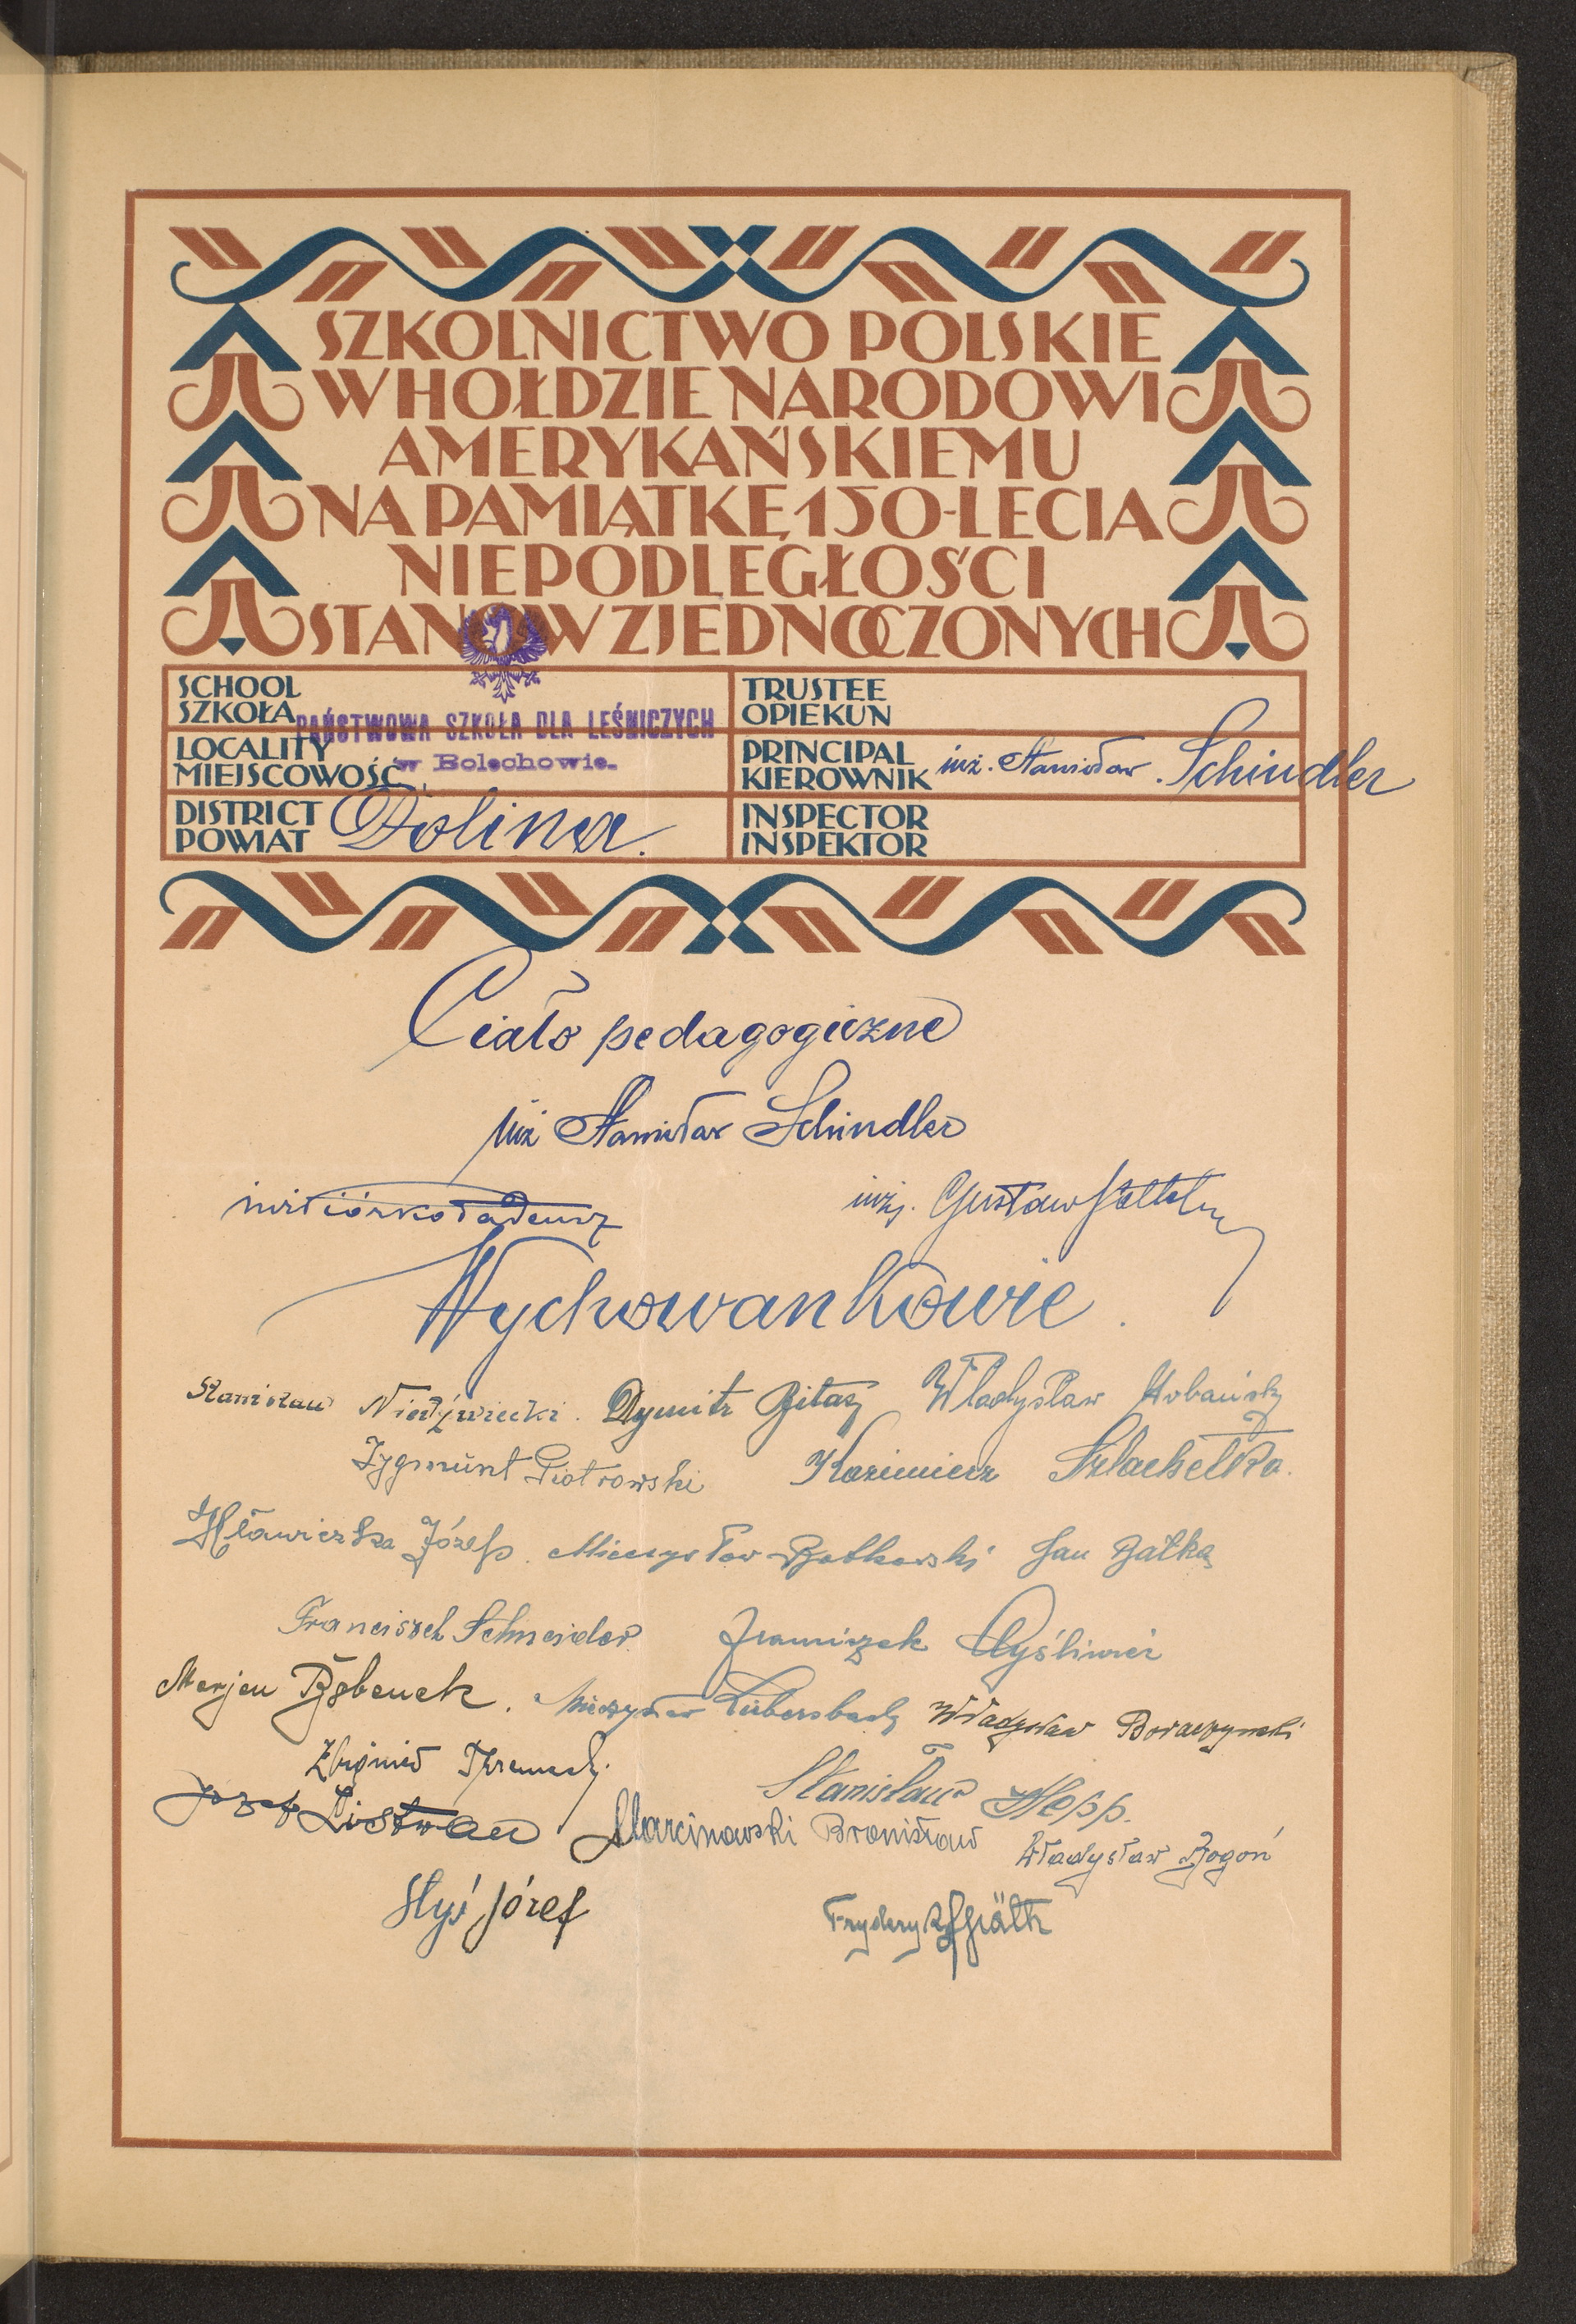 SZKOLNICTWO POLSKIE
W HOŁDZIE NARODOWI
AMERYKAŃSKIEMU
NA PAMIĄTKĘ 150-LECIA
NIEPODLEGŁOŚCI
STANÓW ZJEDNOCZONYCH
SCHOOL
SZKOŁA PAŃSTWOWA SZKOŁA DLA LEŚNICZYCH
LOCALITY
MIEJSCOWOŚĆ w Bolechowie.
DISTRICT
POWIAT Dolina.
TRUSTEE
OPIEKUN
PRINCIPAL
KIEROWNIK inż. Stanisław Schindler
INSPECTOR
INSPEKTOR
Ciało pedagogiczne
inż Stanisław Schindler
Tadeusz inż. Gustaw
Wychowankowie.
Stanisław Niedźwiecki. Dymitr Bitas Władysław Urbański
Zygmunt Piotrowski Kazimierz Szlachetka.
Hławiczka Józef. Mieczysław Batkowski Jan Bałka
Franciszek Schneider Franciszek Myśliwiec
Mieczysław Władysław
Zbigniew Stanisław Hepp.
Józef Listwan Marcinowski Bronisław Władysław Zogoń
Słyś Józef Fryderyk Späth